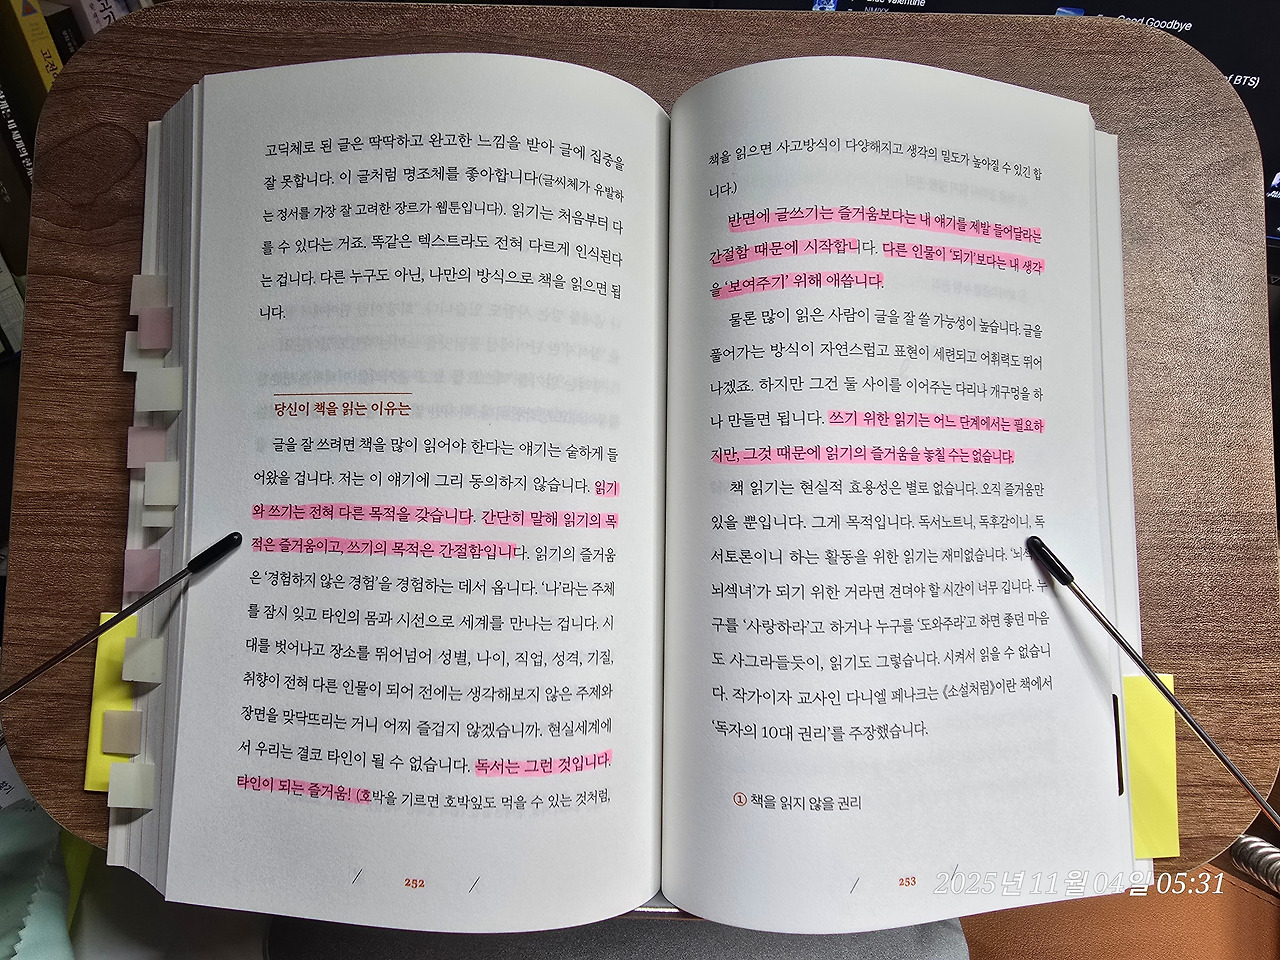 고딕체로 된 글은 딱딱하고 완고한 느낌을 받아 글에 집중을
잘 못합니다. 이 글처럼 명조체를 좋아합니다(글씨체가 유발하
는 정서를 가장 잘 고려한 장르가 웹툰입니다). 읽기는 처음부터 다
를 수 있다는 거죠. 똑같은 텍스트라도 전혀 다르게 인식된다
는 겁니다. 다른 누구도 아닌, 나만의 방식으로 책을 읽으면 됩
니다.
당신이 책을 읽는 이유는
글을 잘 쓰려면 책을 많이 읽어야 한다는 얘기는 숱하게 들
어왔을 겁니다. 저는 이 얘기에 그리 동의하지 않습니다. 읽기
와 쓰기는 전혀 다른 목적을 갖습니다. 간단히 말해 읽기의 목
적은 즐거움이고, 쓰기의 목적은 간절함입니다. 읽기의 즐거움
은 ‘경험하지 않은 경험’을 경험하는 데서 옵니다. ‘나’라는 주체
를 잠시 잊고 타인의 몸과 시선으로 세계를 만나는 겁니다. 시
대를 벗어나고 장소를 뛰어넘어 성별, 나이, 직업, 성격, 기질,
취향이 전혀 다른 인물이 되어 전에는 생각해보지 않은 주제와
장면을 맞닥뜨리는 거니 어찌 즐겁지 않겠습니까. 현실세계에
서 우리는 결코 타인이 될 수 없습니다. 독서는 그런 것입니다.
타인이 되는 즐거움! (호박을 기르면 호박잎도 먹을 수 있는 것처럼,
252
책을 읽으면 사고방식이 다양해지고 생각의 밀도가 높아질 수 있긴 합
니다.)
반면에 글쓰기는 즐거움보다는 내 얘기를 제발 들어달라는
간절함 때문에 시작합니다. 다른 인물이 ‘되기’보다는 내 생각
을 ‘보여주기’ 위해 애씁니다.
물론 많이 읽은 사람이 글을 잘 쓸 가능성이 높습니다. 글을
풀어가는 방식이 자연스럽고 표현이 세련되고 어휘력도 뛰어
나겠죠. 하지만 그건 둘 사이를 이어주는 다리나 개구멍을 하
나 만들면 됩니다. 쓰기 위한 읽기는 어느 단계에서는 필요하
지만, 그것 때문에 읽기의 즐거움을 놓칠 수는 없습니다.
책 읽기는 현실적 효용성은 별로 없습니다. 오직 즐거움만
있을 뿐입니다. 그게 목적입니다. 독서노트니, 독후감이니, 독
서토론이니 하는 활동을 위한 읽기는 재미없습니다. ‘뇌섹
뇌섹녀’가 되기 위한 거라면 견뎌야 할 시간이 너무 깁니다. 누
구를 ‘사랑하라’고 하거나 누구를 ‘도와주라’고 하면 좋던 마음
도 사그라들듯이, 읽기도 그렇습니다. 시켜서 읽을 수 없습니
다. 작가이자 교사인 다니엘 페나크는 《소설처럼》이란 책에서
‘독자의 10대 권리’를 주장했습니다.
① 책을 읽지 않을 권리
253
2025년 11월 04일 05:31
Good Goodbye
of BTS)